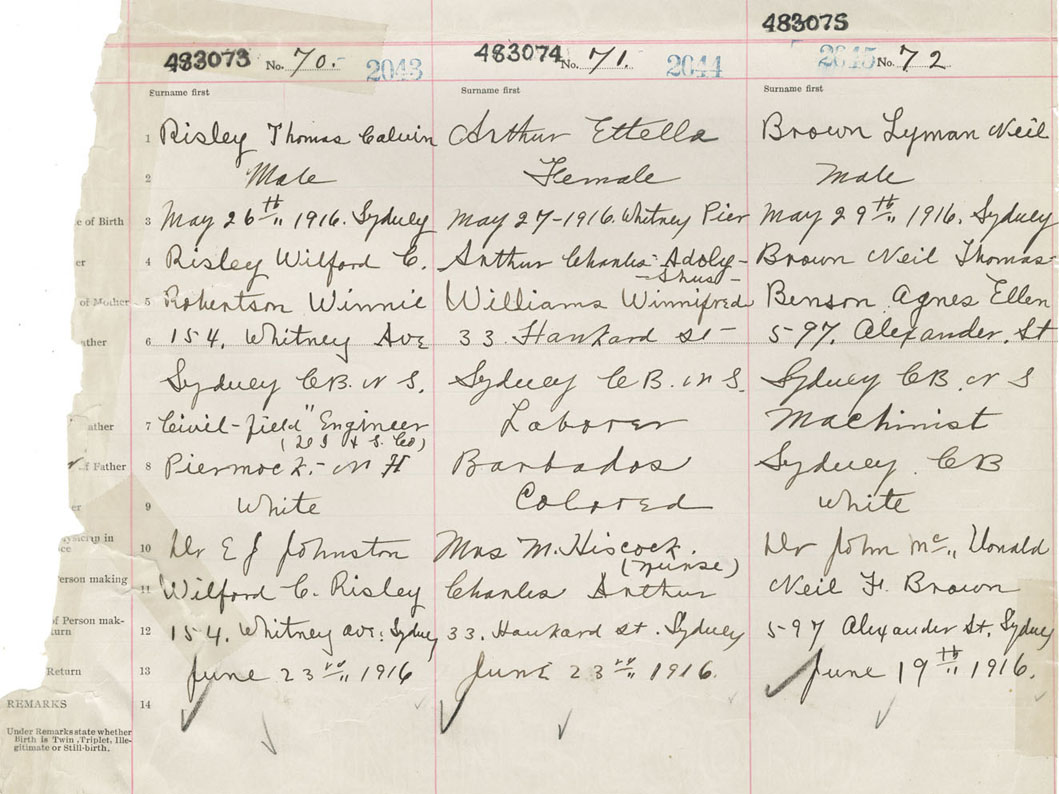 483073 No. 70. 2043
483074 No. 71. 2044
483075 2045 No. 72
Surname first Surname first Surname first
1 Risley Thomas Calvin Arthur Ettella Brown Lyman Neil
2 Male Female Male
e of Birth 3 May 26th 1916. Sydney May 27-1916. Whitney Pier May 29th 1916. Sydney
er 4 Risley Wilford C. Arthur Charles Adolp- Brown Neil Thomas
-hus-
of Mother 5 Robertson Winnie Williams Winnifred Benson Agnes Ellen
ather 6 154. Whitney Ave 33. Hankard St 597. Alexander. St
Sydney CB. N S. Sydney CB. N S. Sydney CB. N S
ather 7 Civil-field" Engineer Laborer Machinist
(D I & S. Co)
of Father 8 N H Barbados Sydney. CB
er 9 White Colored White
ysician in
ce 10 Dr E J Johnston Mrs M. Hiscock. Dr John Mc Donald
(nurse)
erson making 11 Wilford C. Risley Charles Arthur Neil F. Brown
f Person mak-
turn 12 154. Whitney ave: Sydney 33. Hankard St. Sydney 597 Alexander St. Sydney
Return 13 June 23rd 1916 June 23rd 1916. June 19th 1916.
REMARKS 14
Under Remarks state whether
Birth is Twin, Triplet, Ille-
gitimate or Still-birth.